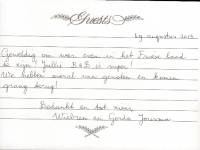 Guests
29 augustus 2013
Geweldig om weer even in het Friese land
te zijn! Jullie B&B is super!
We hebben overal van genoten en komen
graag terug!
Bedankt en tot ziens
en Gerda